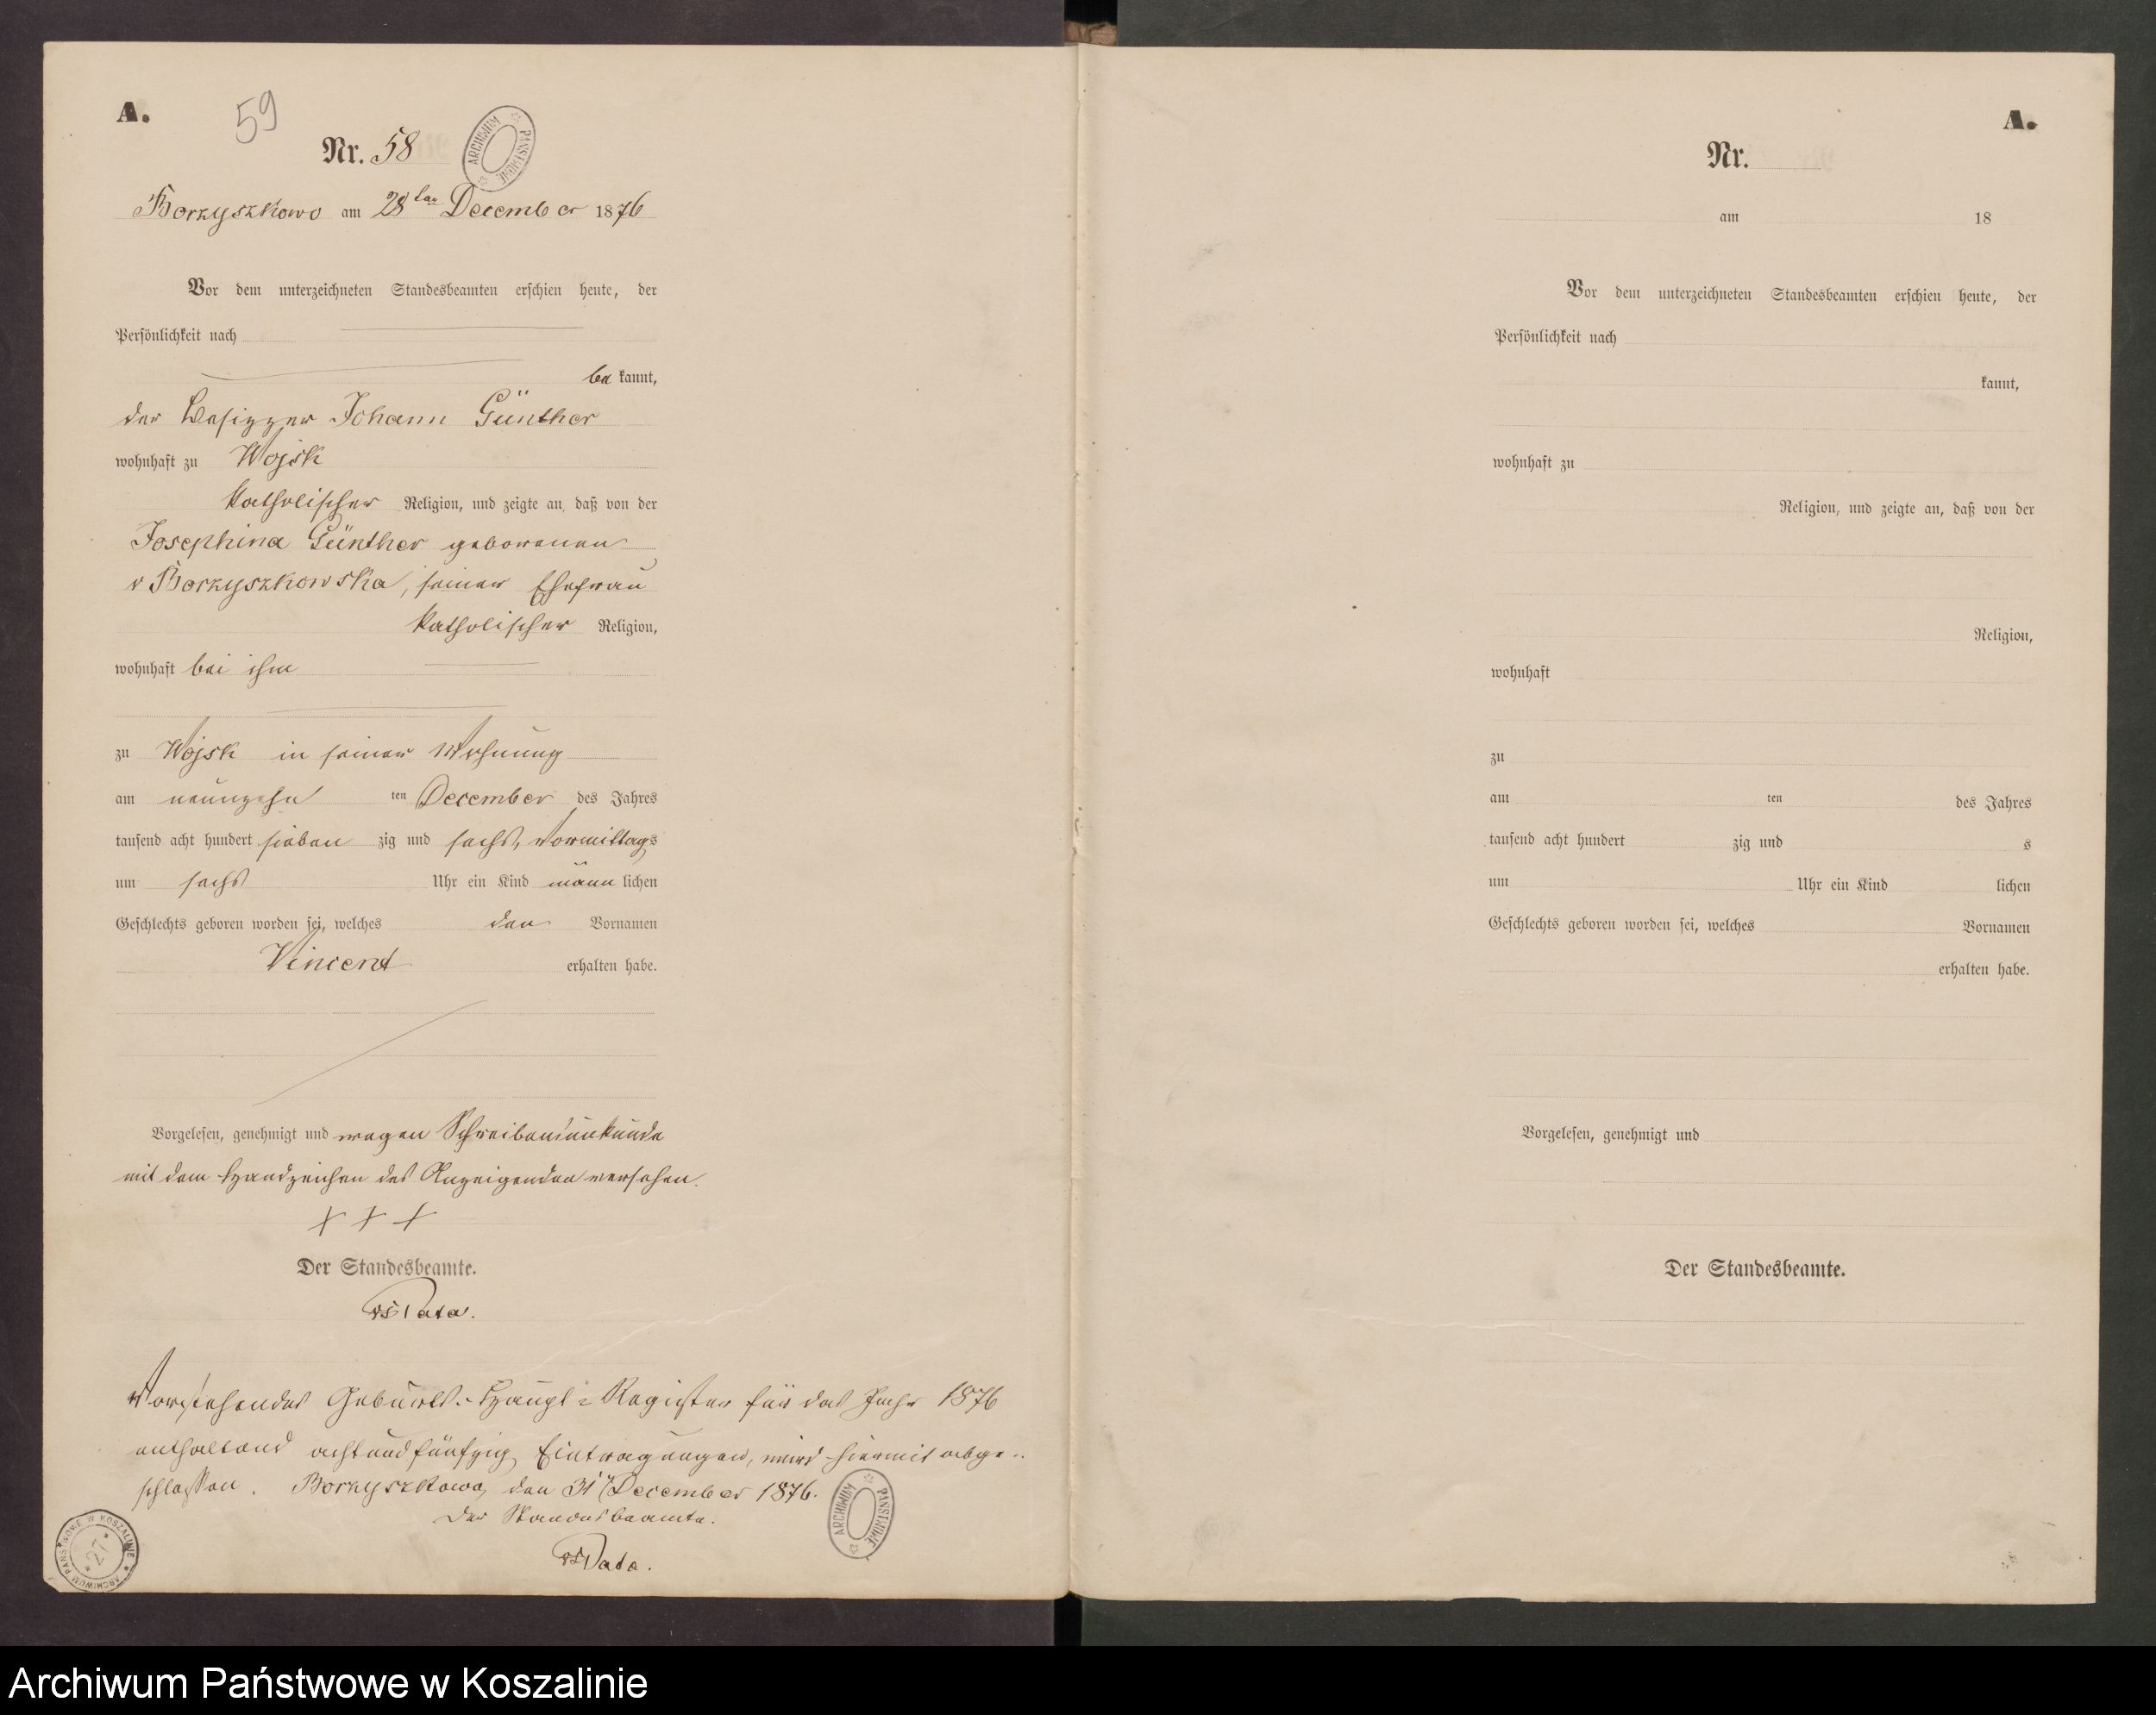 A.
59
Nr. 58
ARCHIWUM PAŃSTWOWE
Borzyszkowo am 28ten December 1876
Vor dem unterzeichneten Standesbeamten erschien heute, der
Persönlichkeit nach
be kannt,
der Besitzer Johann Günther
wohnhaft zu Wojsk
katholischer Religion, und zeigte an, daß von der
Josephina Günther geborenen
v Borzyszkowska, seiner Ehefrau
katholischer Religion,
wohnhaft bei ihm
zu Wojsk in seiner Wohnung
am neunzehn ten December des Jahres
tausend acht hundert sieben zig und sechs, Vormittags
um sechs Uhr ein Kind männ lichen
Geschlechts geboren worden sei, welches den Vornamen
Vincent erhalten habe.
Vorgelesen, genehmigt und wegen Schreibensunkunde
mit dem Handzeichen des Anzeigenden versehen.
+ + +
Der Standesbeamte.
Vorstehendes Geburts-Haupt-Register für das Jahr 1876
enthaltend achtundfünfzig Eintragungen, wird hiermit abge-
schlossen. Borzyszkowo, den 31 December 1876.
Der Standesbeamte.
ARCHIWUM PAŃSTWOWE
ARCHIWUM PAŃSTWOWE W KOSZALINIE
27
A.
Nr.
am 18
Vor dem unterzeichneten Standesbeamten erschien heute, der
Persönlichkeit nach
kannt,
wohnhaft zu
Religion, und zeigte an, daß von der
Religion,
wohnhaft
zu
am ten des Jahres
tausend acht hundert zig und s
um Uhr ein Kind lichen
Geschlechts geboren worden sei, welches Vornamen
erhalten habe.
Vorgelesen, genehmigt und
Der Standesbeamte.
Archiwum Państwowe w Koszalinie